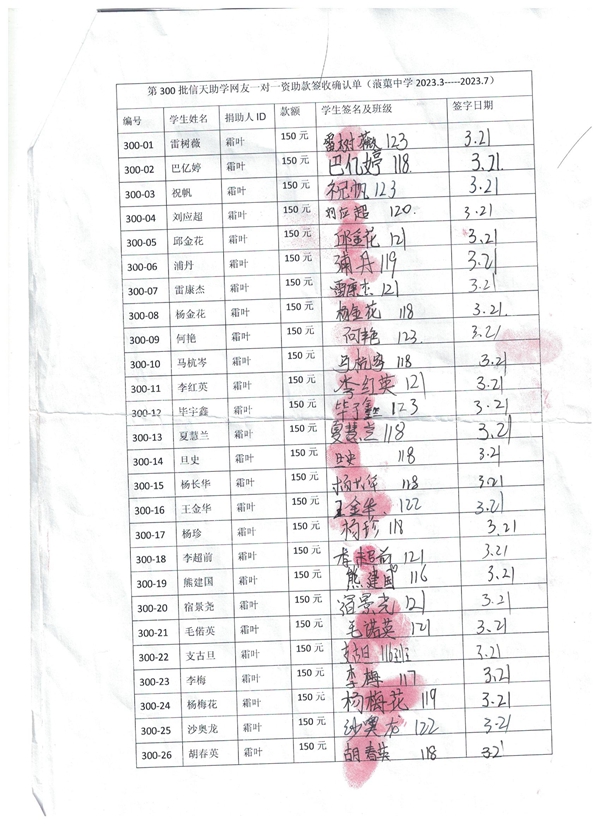 第 300 批信天助学网友一对一资助款签收确认单（蒗蕖中学 2023.3-----2023.7）
编号 学生姓名 捐助人 ID 款额 学生签名及班级 签字日期
300-01 雷树薇 霜叶 150 元 雷树薇 123 3.21
300-02 巴亿婷 霜叶 150 元 巴亿婷 118 3.21
300-03 祝帆 霜叶 150 元 祝帆 123 3.21
300-04 刘应超 霜叶 150 元 刘应超 120. 3.21
300-05 邱金花 霜叶 150 元 邱金花 121 3.21
300-06 浦丹 霜叶 150 元 浦丹 119 3.21
300-07 雷康杰 霜叶 150 元 雷康杰 121 3.21
300-08 杨金花 霜叶 150 元 杨金花 118 3.21.
300-09 何艳 霜叶 150 元 何艳 123. 3.21
300-10 马杭岑 霜叶 150 元 马杭岑 118 3.21
300-11 李红英 霜叶 150 元 李红英 121 3.21
300-12 毕宇鑫 霜叶 150 元 毕宇鑫 123 3.21
300-13 夏慧兰 霜叶 150 元 夏慧兰 118 3.21
300-14 旦史 霜叶 150 元 旦史 118 3.21
300-15 杨长华 霜叶 150 元 杨长华 118 3.21
300-16 王金华 霜叶 150 元 王金华 122 3.21
300-17 杨珍 霜叶 150 元 杨珍 118 3.21
300-18 李超前 霜叶 150 元 李超前 121 3.21
300-19 熊建国 霜叶 150 元 熊建国 116 3.21
300-20 宿景尧 霜叶 150 元 宿景尧 121 3.21
300-21 毛偌英 霜叶 150 元 毛诺英 121 3.21
300-22 支古旦 霜叶 150 元 支古旦 116 3.21
300-23 李梅 霜叶 150 元 李梅 117 3.21
300-24 杨梅花 霜叶 150 元 杨梅花 119 3.21
300-25 沙奥龙 霜叶 150 元 沙奥龙 122 3.21
300-26 胡春英 霜叶 150 元 胡春英 118 3.21